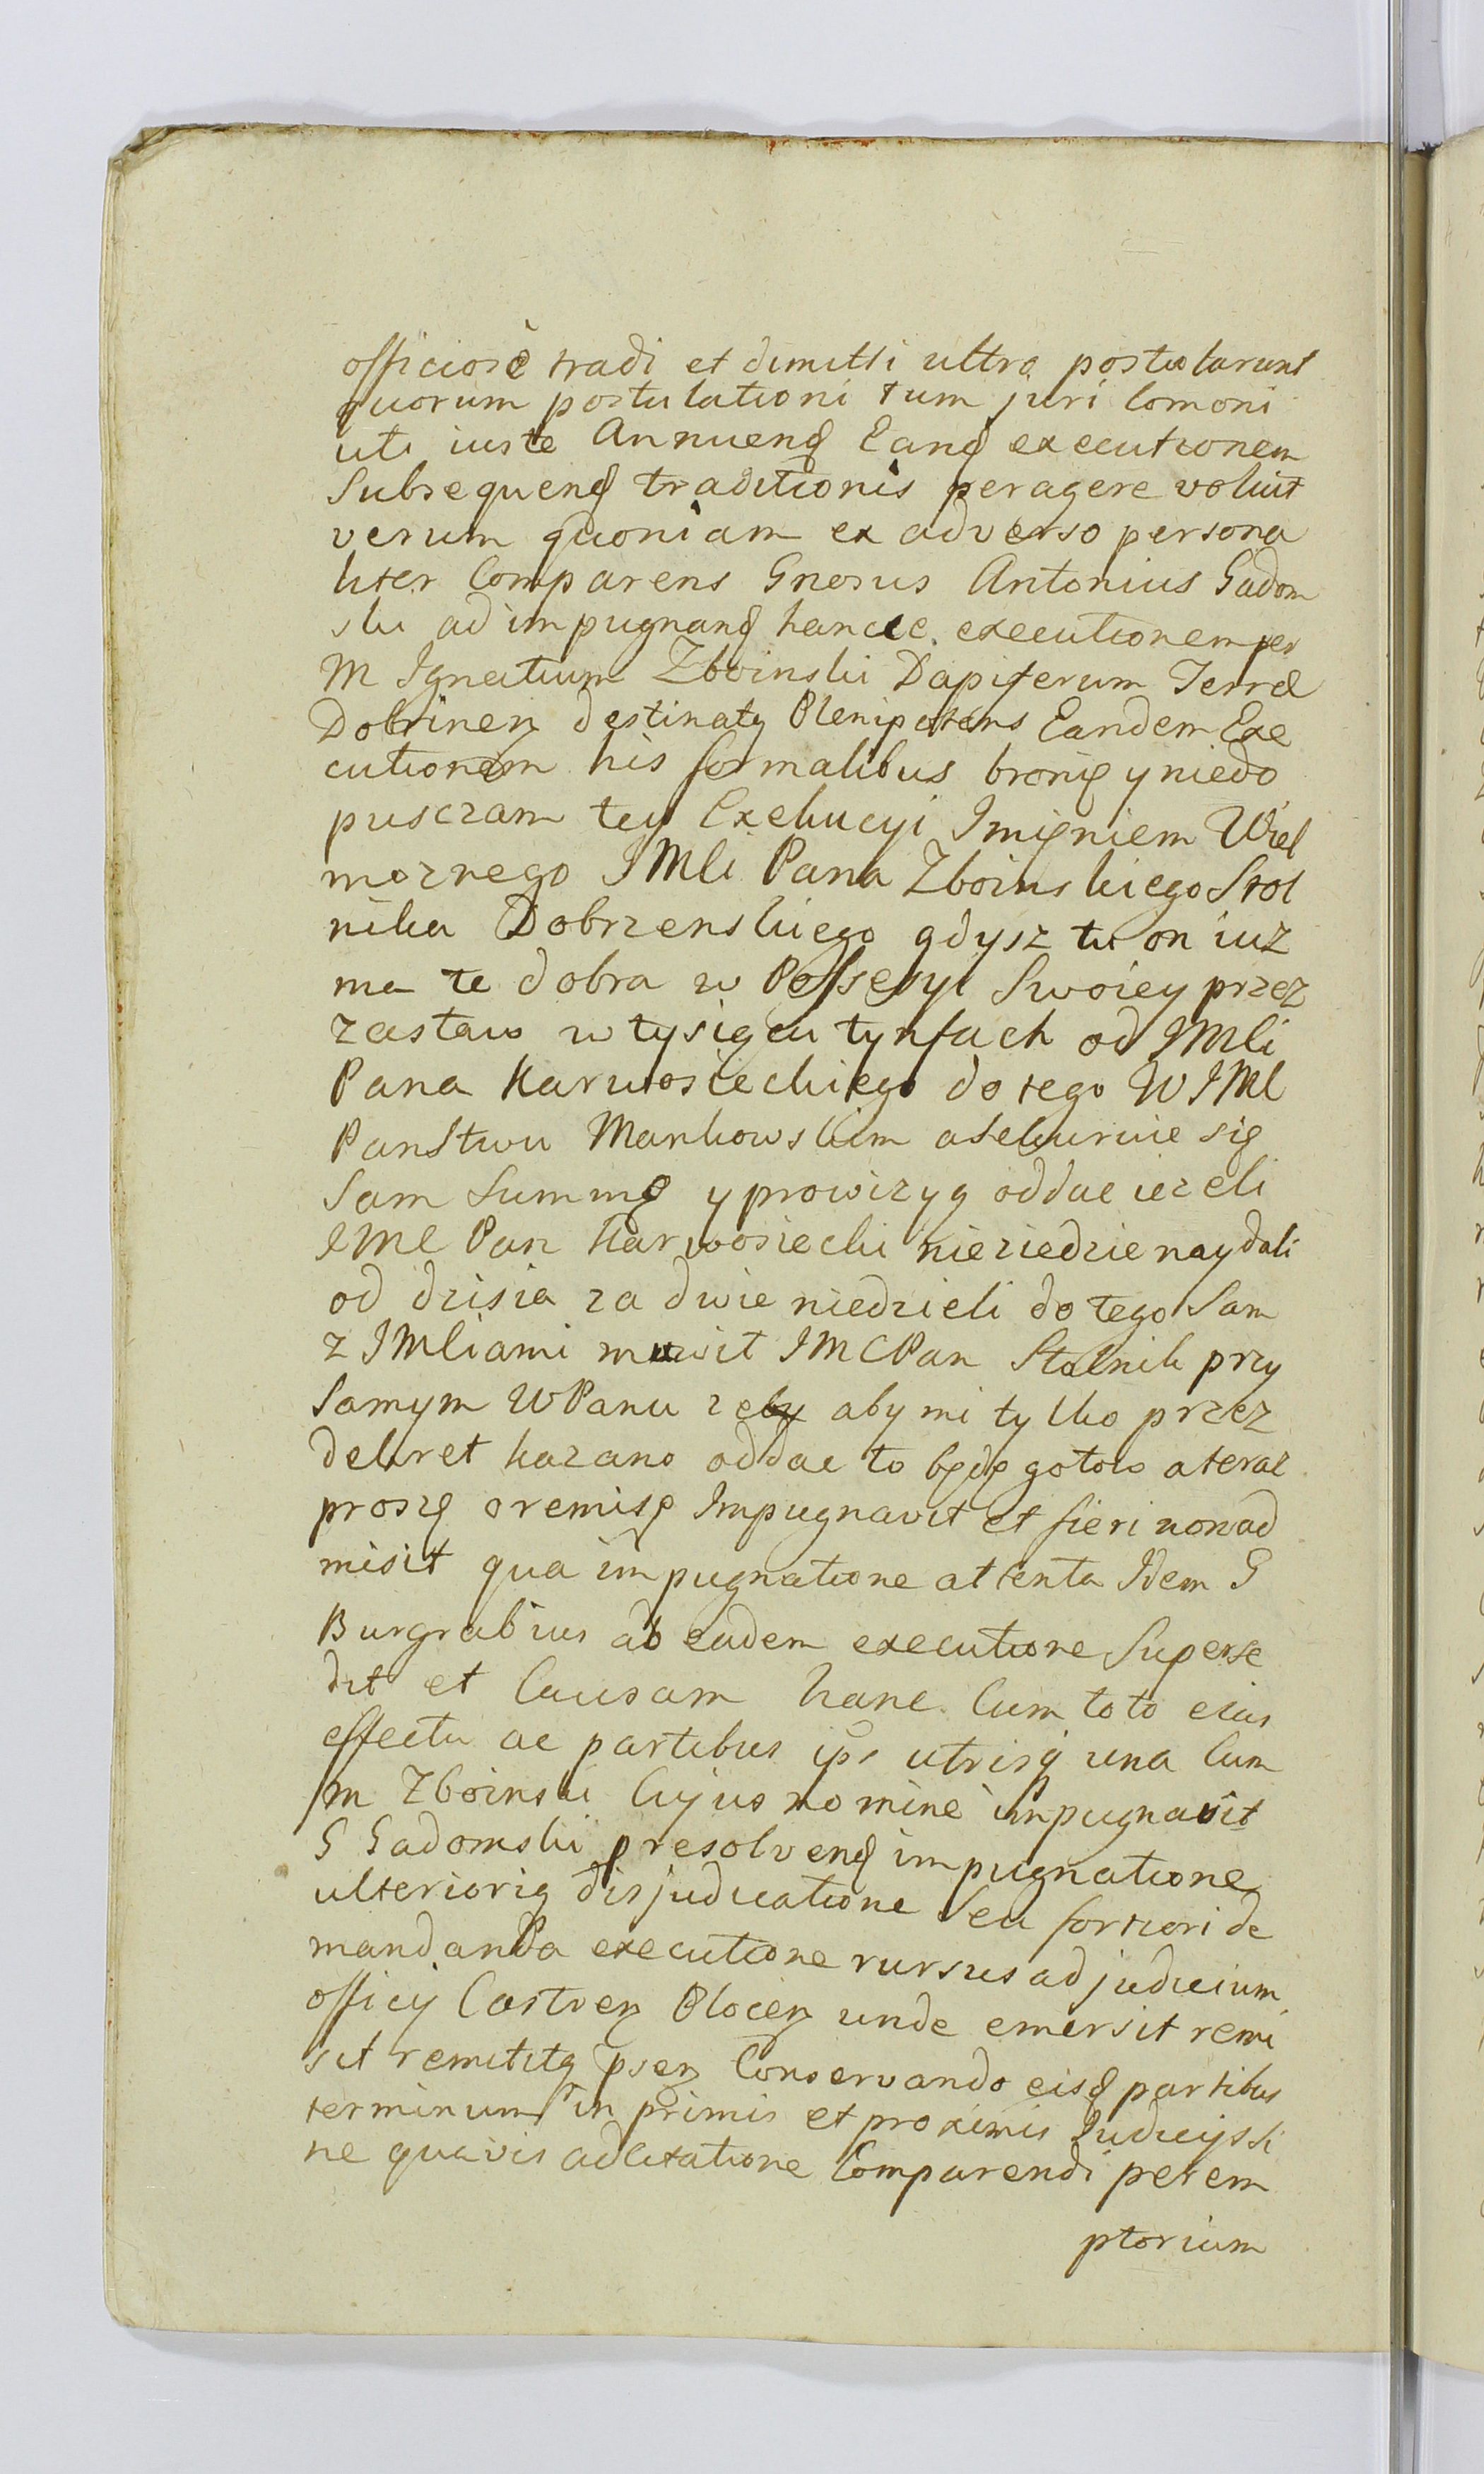 officiosè tradi et dimitti ultro postularunt
quorum postulationi tum juri Comoni
uti iuste Annuend Eand executionem
Subsequend traditionis peragere voluit
verum quoniam ex adverso persona
liter Comparens Gnosus Antonius Gadom
ski ad impugnand hancce executionem per
M Ignatium Zboinski Dapiferum Terræ
Dobrinen destinatq Plenipotens Eandem Exe
cutionem his formalibus bronię y niedo
pusczam tey Exekucyi Imięniem Wiel
moznego IMCi Pana Zboinskiego Stol
nika Dobrzenskiego gdysz tu on iuz
ma te dobra w Possesyi Swoiey przez
zastaw w tysiącu tynfach od IMCi
Pana Karwosieckiego do tego WIMC
Panstwu Mankowskim asekuruie się
Sam Summę y prowizyą oddac iezeli
IMC Pan Karwosiecki nieziedzie naydali
od dzisia za dwie niedzieli do tego Sam
z IMCiami muwił IMCPan Stolnik przy
Samym WPanu zeby aby mi tylko przez
dekret kazano oddac to będę gotow a teraz
proszę o remisę Impugnavit et fieri non ad
misit qua impugnatione attenta Idem G
Burgrabius ab eadem executione Superse
dit et Causam hanc Cum toto eius
effectu ac partibus ips utrisq una Cum
M Zboinski Cujus nomine impugnavit
G Gadomski p resolvend impugnatione
ulterioriq disjudicatione Seu fortiori de
mandanda executione rursus ad judicium
officij Castren Plocen unde emersit remi
sit remititq psen Conservando eisd partibus
terminum in primis et proximis Judicijs si
ne quavis adcitatione Comparendi perem
ptorium